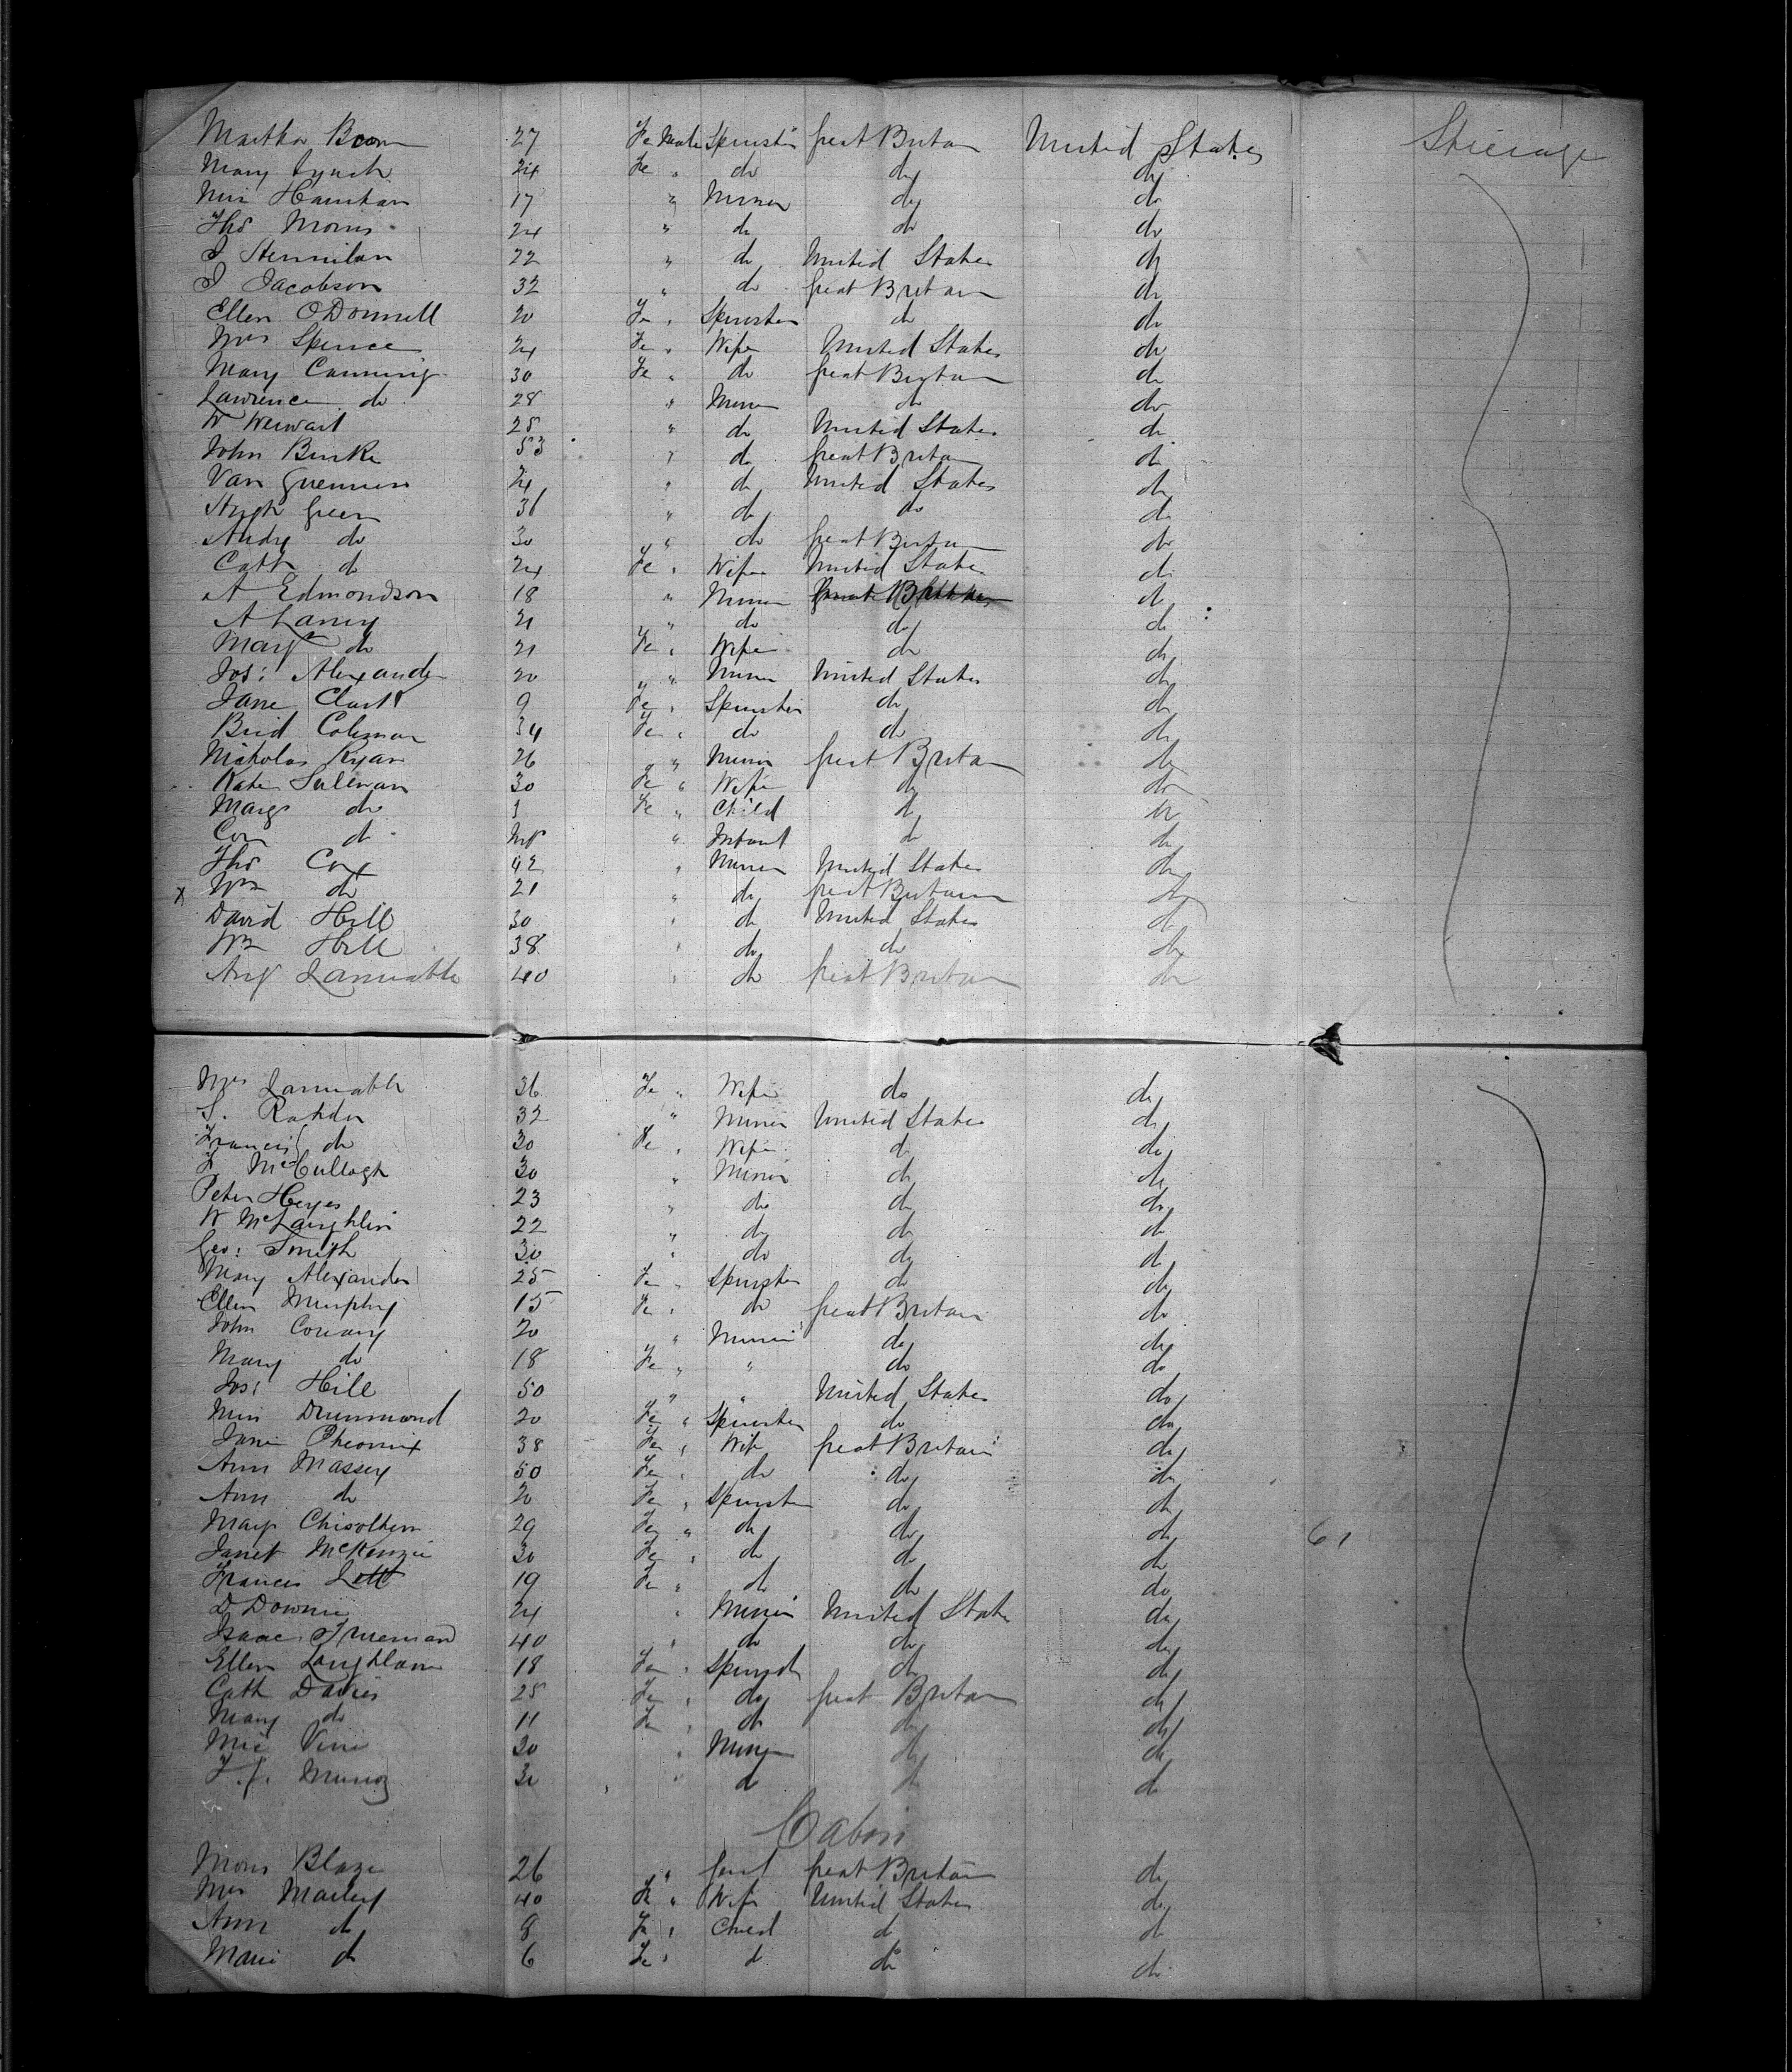 Martha 27 Fe Male Spinster Great Britain United States Steerage
Mary Lynch 24 Fe " do do do
17 " Miner do do
Thos Morris 24 " do do do
22 " do United States do
J Jacobson 32 " do Great Britain do
Ellen O'Donnell 20 Fe " Spinster do do
Mrs Spence 24 Fe " Wife United States do
Mary Canning 30 Fe " do Great Britain do
Lawrence do 28 " Miner do do
W 28 " do United States do
John Burke 53 " do Great Britain do
Van 24 " do United States do
Hugh Green 31 " do do do
Andw do 30 " do Great Britain do
Cath do 24 Fe " Wife United States do
A Edmondson 18 " Miner do
A Laney 21 " do do do
Mary do 21 Fe " Wife do do
Jos: Alexander 20 " Miner United States do
Jane Clark 9 Fe " Spinster do do
Brid Coleman 34 Fe " do do do
Nicholas Ryan 26 " Miner Great Britain do
Kate Sulivan 30 Fe " Wife do do
Marg do 3 Fe " Child do do
Con do Inf " Infant do do
Thos Cox 42 " Miner United States do
x Wm do 21 " do Great Britain do
David Hill 30 " do United States do
Wm Hill 38 " do do do
40 " do Great Britain do
Mrs 36 Fe " Wife do do
S. 32 " Miner United States do
Francis do 30 Fe " Wife do do
F McCullagh 30 " Miner do do
Peter Heyes 23 " do do do
W McLaughlin 22 " do do do
Geo: Smith 30 " do do do
Mary Alexander 25 Fe " Spinster do do
Ellen Murphy 15 Fe " do Great Britain do
John Conway 20 " Miner do do
Mary do 18 Fe " " do do
Jos: Hill 50 " " United States do
Miss Drummond 20 Fe " Spinster do do
Jane Pheonix 38 Fe " Wife Great Britain do
Ann Massey 50 Fe " do do do
Ann do 20 Fe " Spinster do do
Mary Chisolhm 29 Fe " do do do 61
Janet McKenzie 30 Fe " do do do
Francis Lott 19 Fe " do do do
D Downie 24 " Miner United States do
Isaac Trueman 40 " do do do
Ellen Laughlan 18 Fe " Spinster do do
Cath Davies 25 Fe " do Great Britain do
Mary do 11 Fe " do do do
30 " Miner do do
F. J. Munoz 30 " do do do
Cabin
Mons Blaze 26 " Gent Great Britain do
Mrs 40 Fe " Wife United States do
Ann do 8 Fe " Child do do
Marie do 6 Fe " do do do